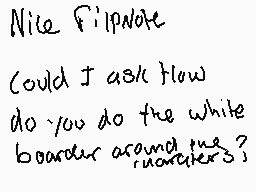 Nice Flipnote
Could I ask How
do you do the white
boarder around the
characters?